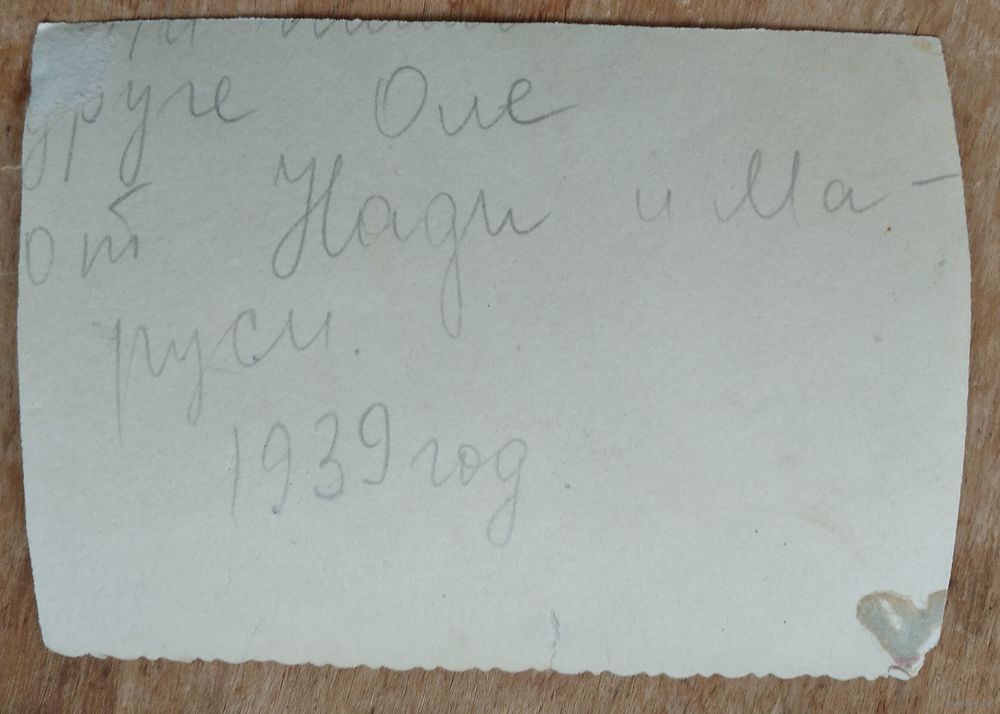 друге Оле
от Нади и Ма-
руси.
1939 год.